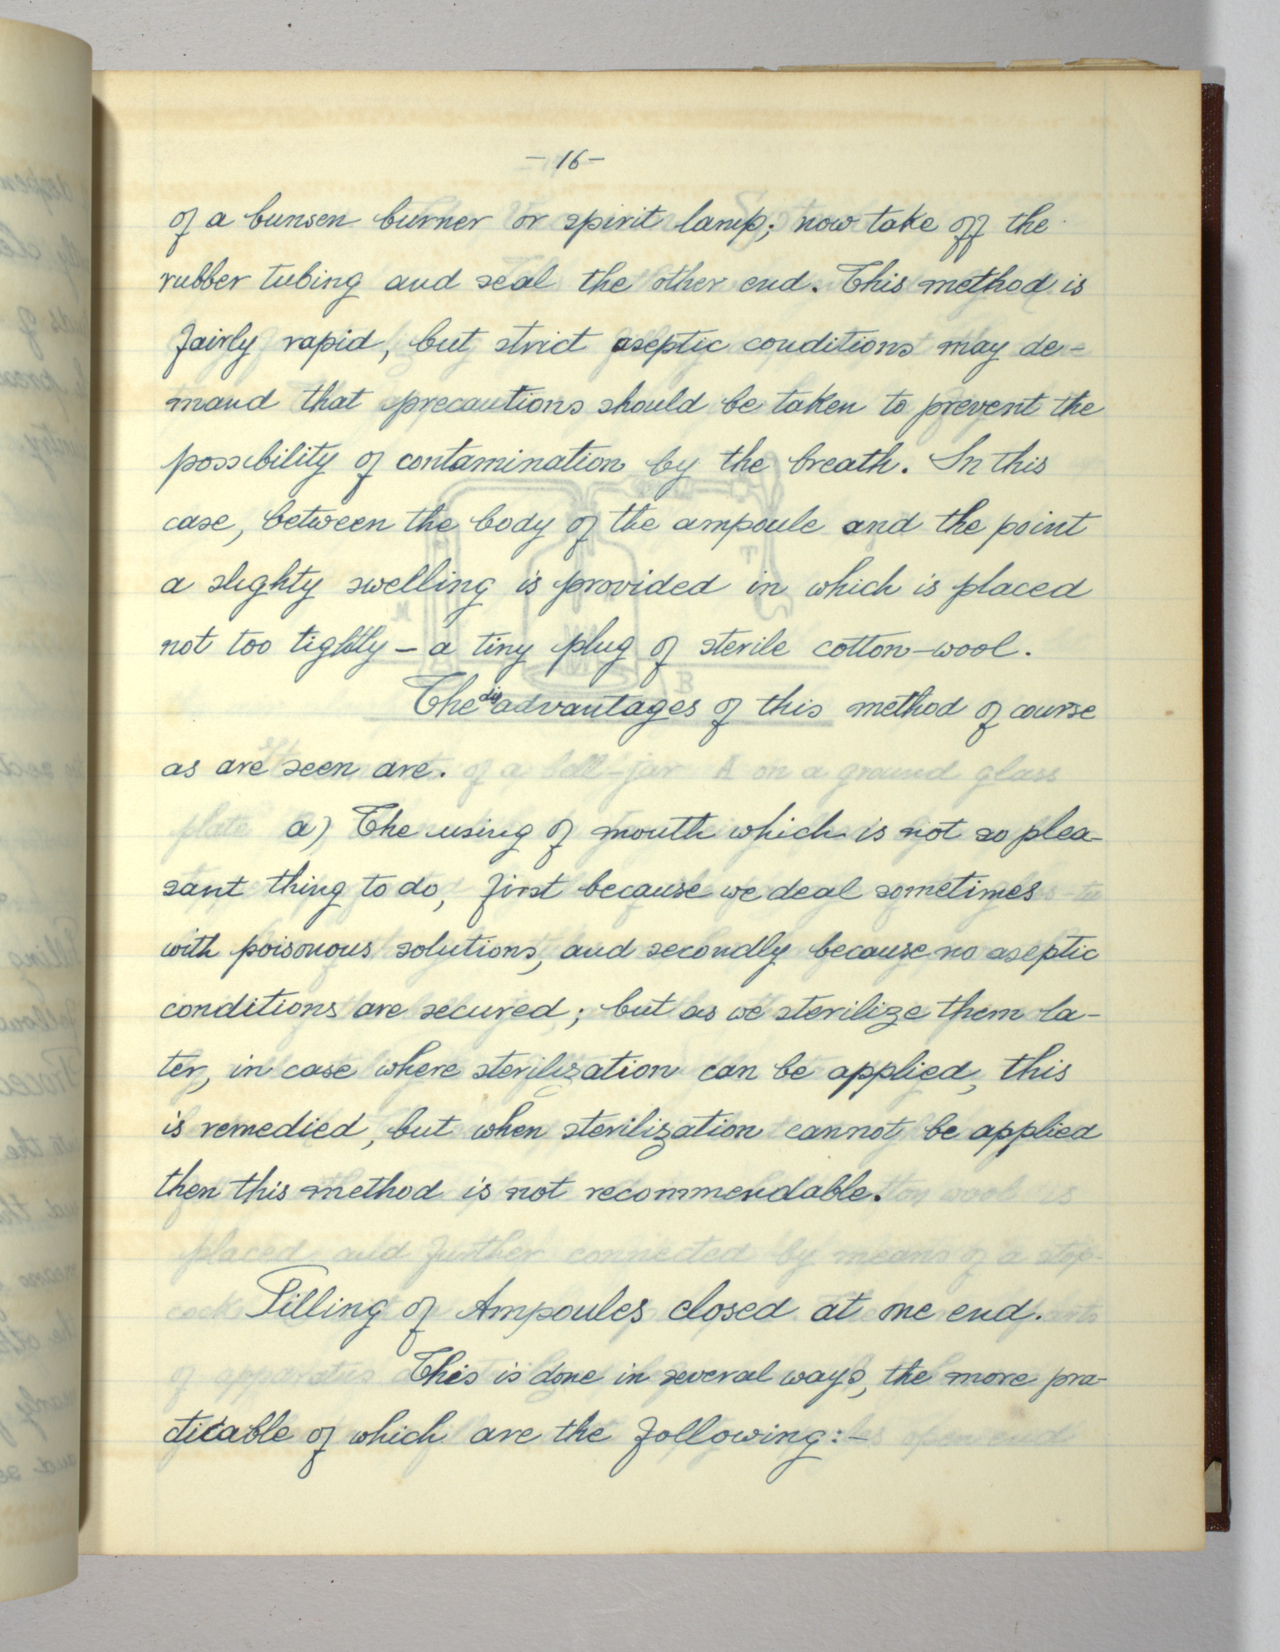 - 16 -
of a bunsen burner or spirit lamp; now take off the
rubber tubing and seal the other end. This method is
fairly rapid, but strict aseptic conditions may de-
mand that precautions should be taken to prevent the
possibility of contamination by the breath. In this
case, between the body of the ampoule and the point
a slighty swelling is provided in which is placed
not too tightly - a tiny plug of sterile cotton-wool.
The disadvantages of this method of course
as are seen are.
a) The using of mouth which is not so plea-
sant thing to do, first because we deal sometimes
with poisonous solutions, and secondly because no aseptic
conditions are secured; but as we sterilize them la-
ter, in case where sterilization can be applied, this
is remedied, but when sterilization cannot be applied
then this method is not recommendable.
Filling of Ampoules closed at one end.
This is done in several ways, the more pra-
cticable of which are the following:-